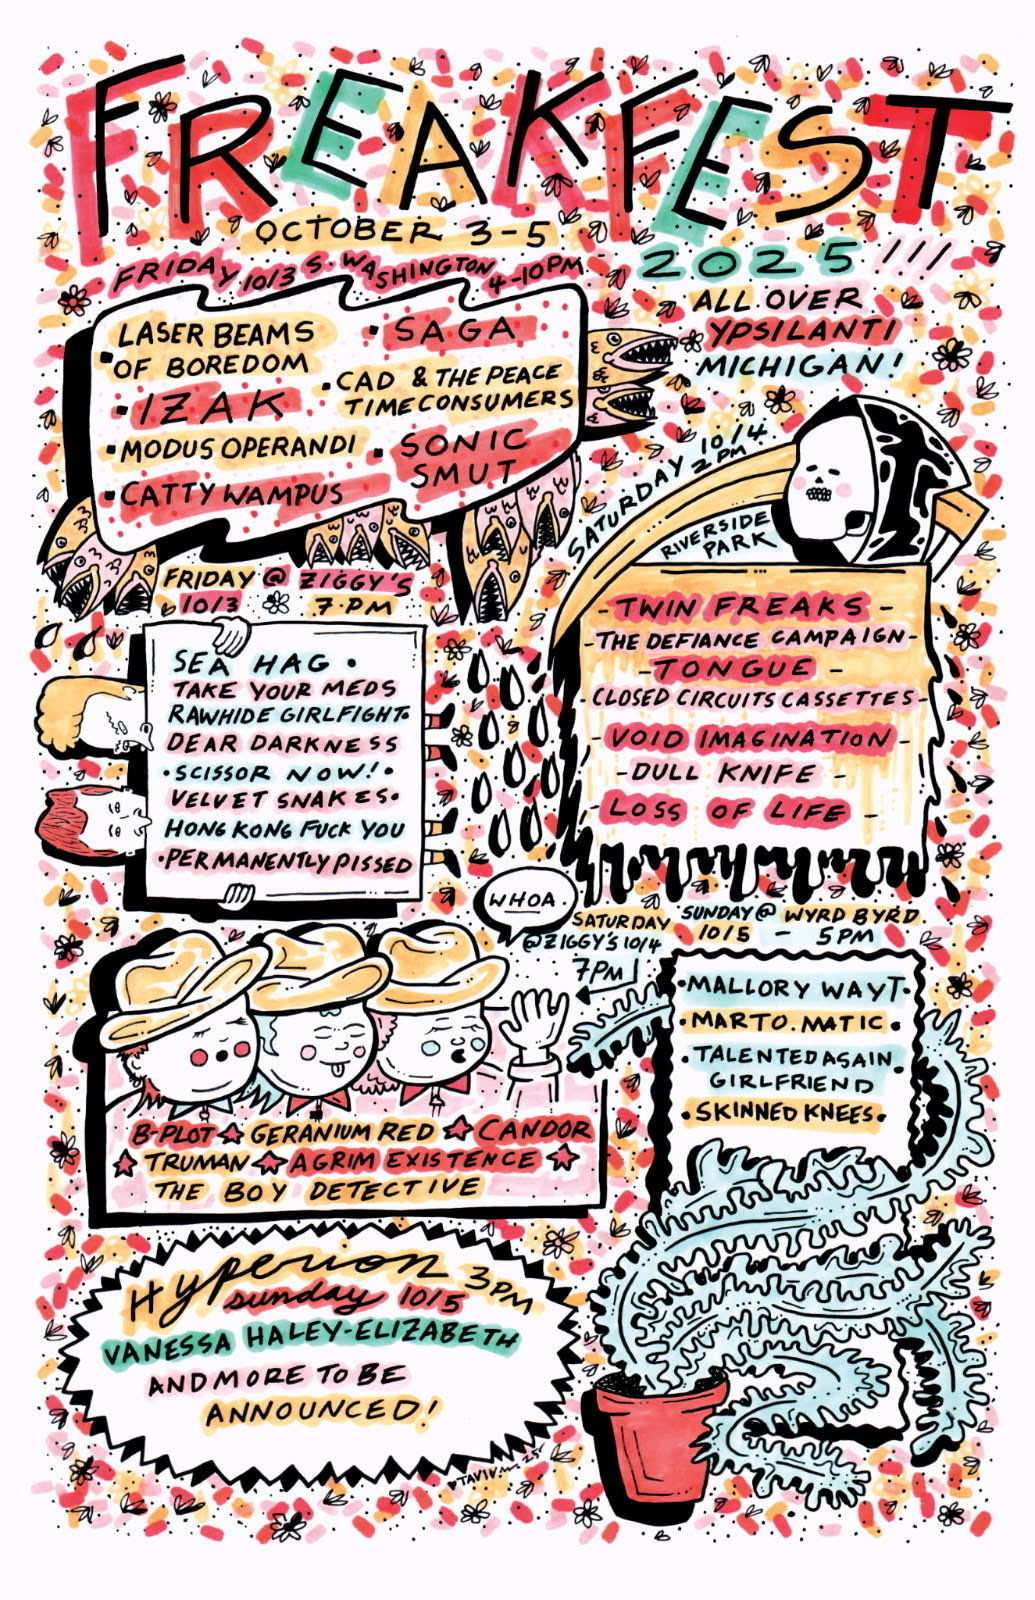 FREAKFEST
OCTOBER 3-5
2025 !!!
ALL OVER
YPSILANTI
MICHIGAN!
FRIDAY 10/3 S. WASHINGTON 4-10PM
LASER BEAMS
OF BOREDOM
• IZAK
• MODUS OPERANDI
• CATTYWAMPUS
• SAGA
• CAD & THE PEACE
TIME CONSUMERS
• SONIC
SMUT
SATURDAY 10/4
2PM
RIVERSIDE
PARK
- TWIN FREAKS -
- THE DEFIANCE CAMPAIGN -
- TONGUE -
- CLOSED CIRCUITS CASSETTES -
- VOID IMAGINATION -
- DULL KNIFE -
- LOSS OF LIFE -
FRIDAY @ ZIGGY'S
10/3 7·PM
SEA HAG •
TAKE YOUR MEDS
RAWHIDE GIRLFIGHT•
DEAR DARKNESS
•SCISSOR NOW!•
VELVET SNAKES•
HONG KONG FUCK YOU
•PERMANENTLY PISSED
WHOA.
SATURDAY
@ZIGGY'S 10/4
7PM
B-PLOT ☆ GERANIUM RED ☆ CANDOR
☆ TRUMAN ☆ A GRIM EXISTENCE ☆
THE BOY DETECTIVE
SUNDAY @ WYRD BYRD
10/5 - 5PM
•MALLORY WAYT•
•MARTO.MATIC•
•TALENTED ASIAN
GIRLFRIEND
•SKINNED KNEES•
Hyperion 3PM
sunday 10/5
VANESSA HALEY-ELIZABETH
AND MORE TO BE
ANNOUNCED!